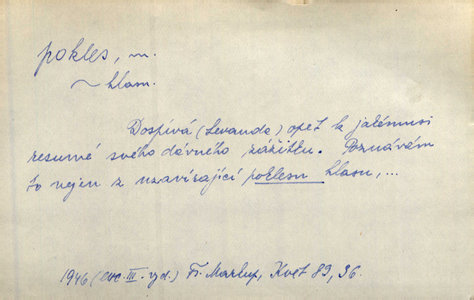 pokles, m.
~ hlasu.
Dospívá (Levanda) opět k jakémusi
resumé svého dávného zážitku. Poznávám
to nejen z uzavírající poklesu hlasu,...
1946 (cvc. III. vyd.) Fr. Markup, Kvet 89, 36.